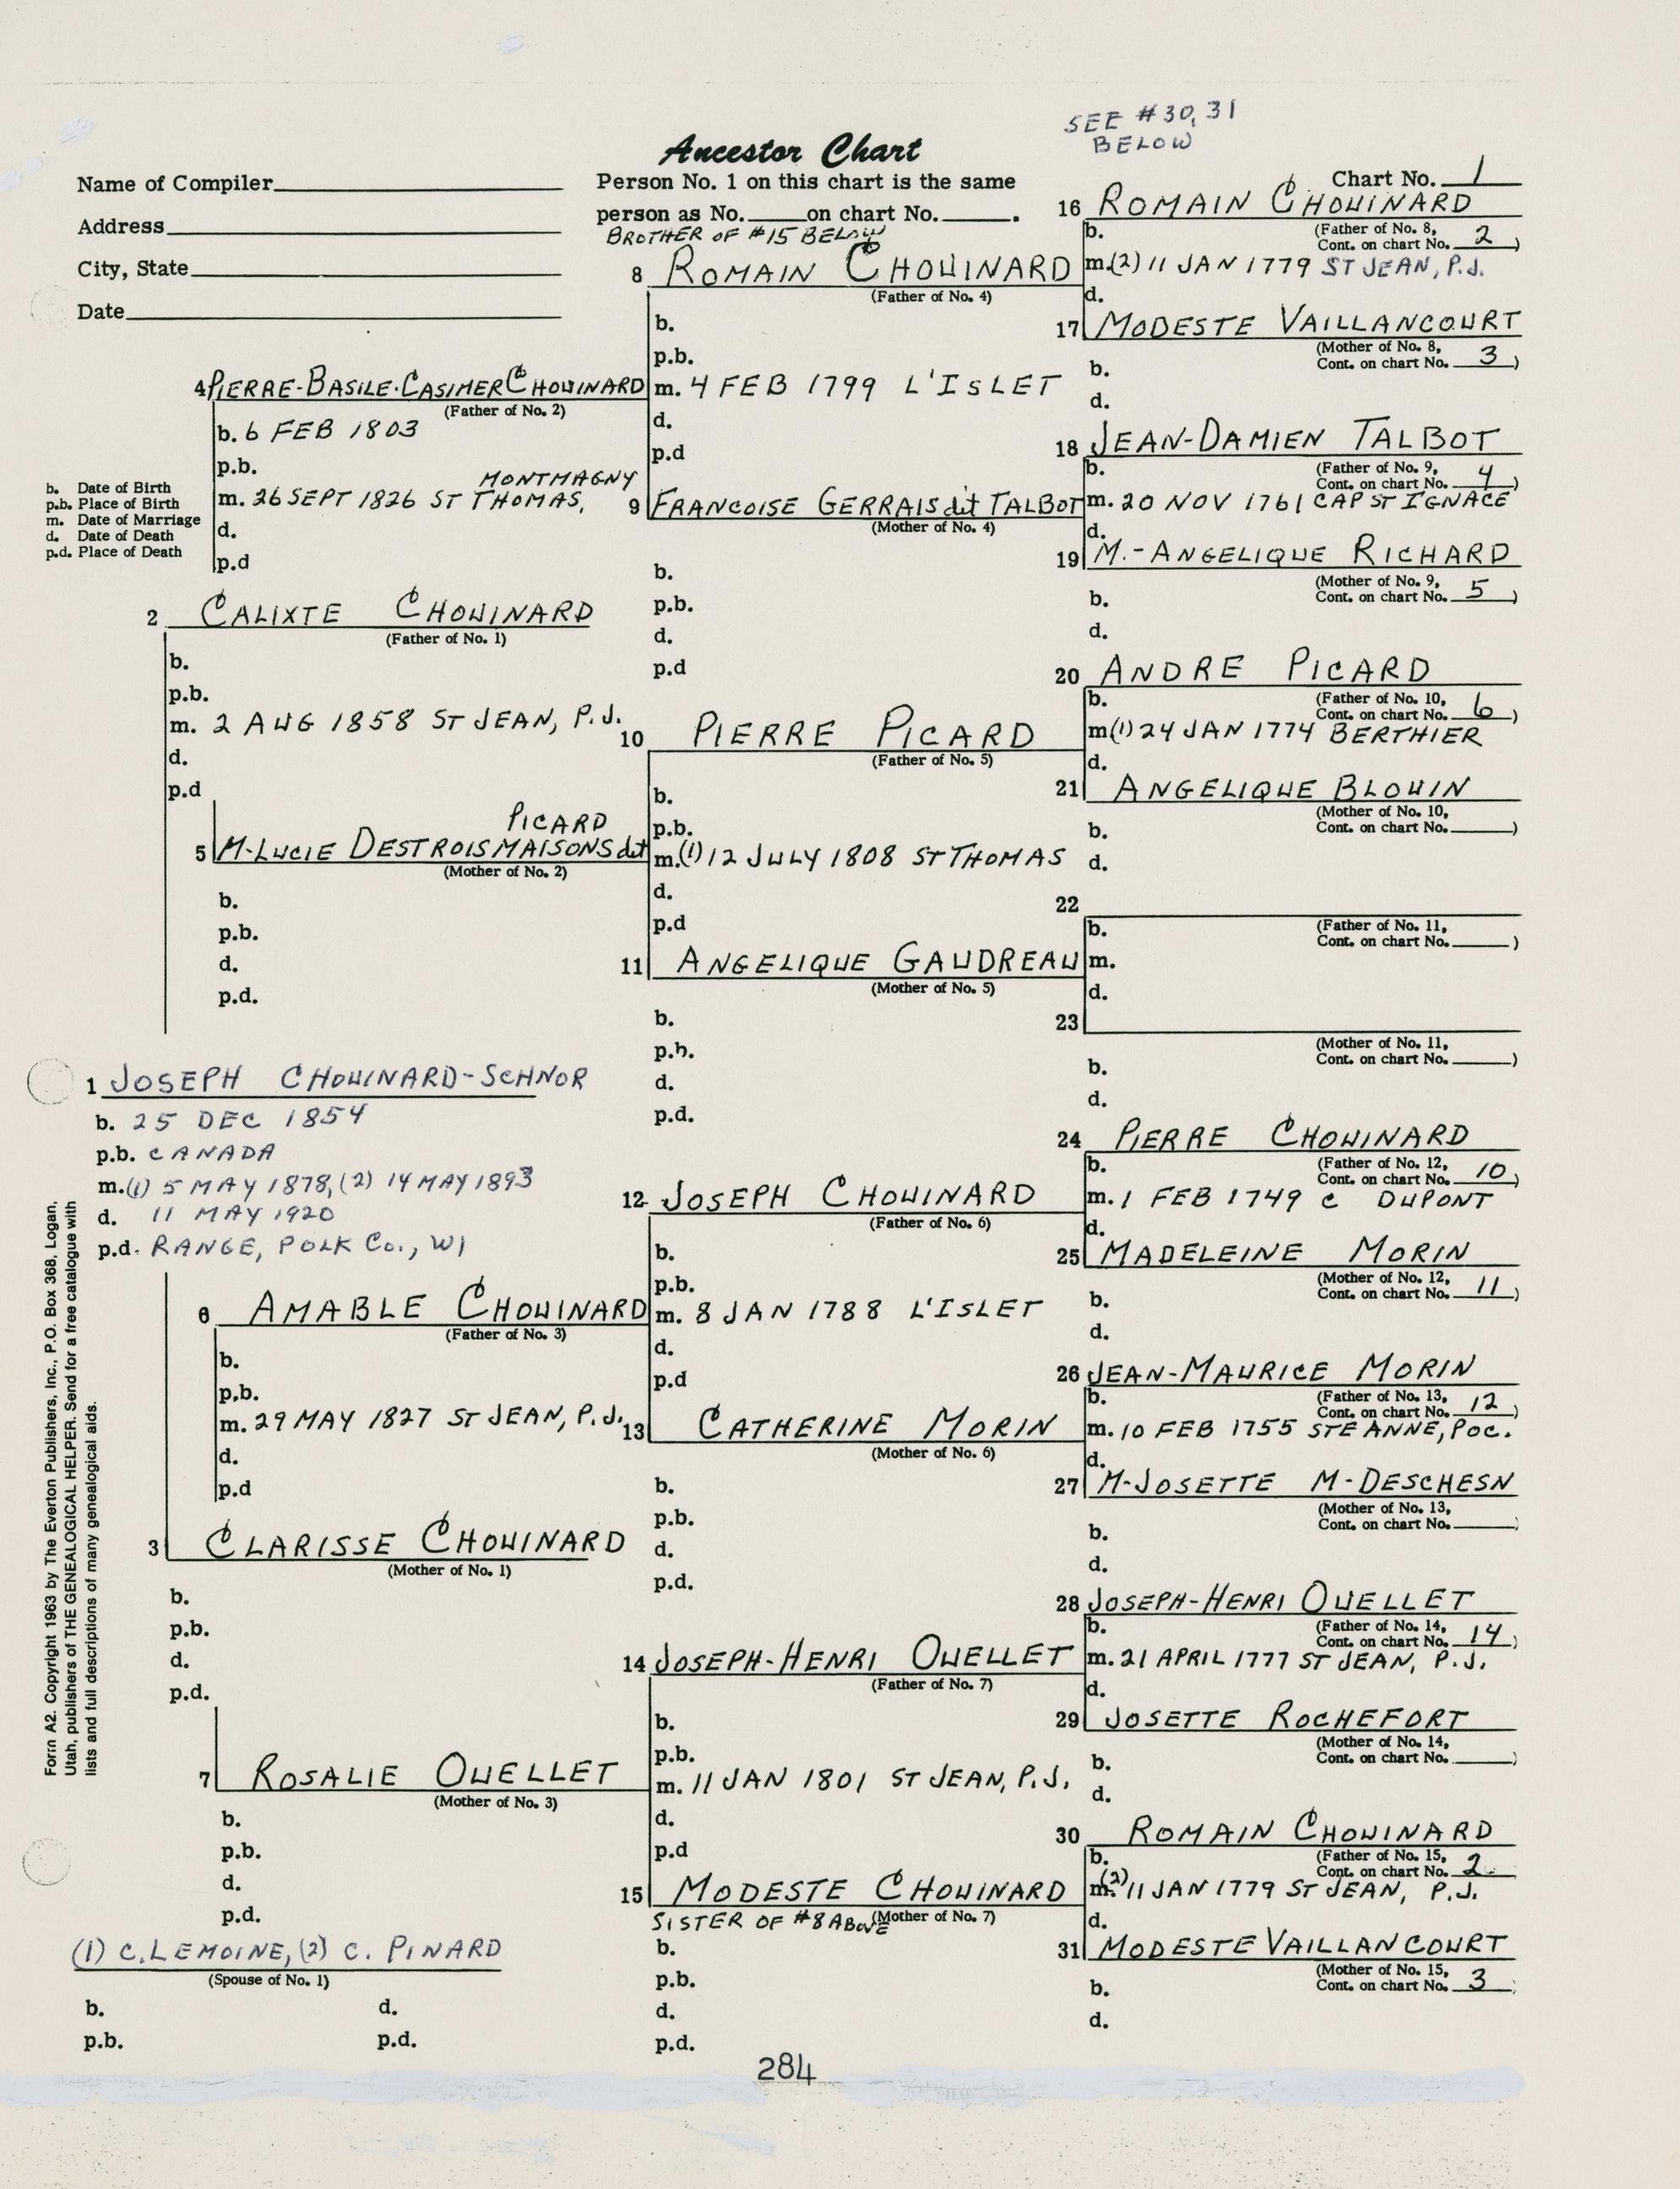 SEE #30,31
BELOW
Ancestor Chart
Name of Compiler
Address
City, State
Date
Person No. 1 on this chart is the same
person as No. on chart No. .
BROTHER OF #15 BELOW
Chart No. 1
b. Date of Birth
p.b. Place of Birth
m. Date of Marriage
d. Date of Death
p.d. Place of Death
1 JOSEPH CHOUINARD-SCHNOR
b. 25 DEC 1854
p.b. CANADA
m.(1) 5 MAY 1878, (2) 14 MAY 1893
d. 11 MAY 1920
p.d. RANGE, POLK Co., WI
(1) C. LEMOINE, (2) C. PINARD
(Spouse of No. 1)
b. d.
p.b. p.d.
2 CALIXTE CHOUINARD
(Father of No. 1)
b.
p.b.
m. 2 AUG 1858 ST JEAN, P.J.
d.
p.d
3 CLARISSE CHOUINARD
(Mother of No. 1)
b.
p.b.
d.
p.d.
4 PIERRE-BASILE-CASIMER CHOUINARD
(Father of No. 2)
b. 6 FEB 1803
p.b.
MONTMAGNY
m. 26 SEPT 1826 ST THOMAS,
d.
p.d
PICARD
5 M-LUCIE DESTROISMAISONS dit
(Mother of No. 2)
b.
p.b.
d.
p.d.
6 AMABLE CHOUINARD
(Father of No. 3)
b.
p.b.
m. 29 MAY 1827 ST JEAN, P.J.
d.
p.d
7 ROSALIE OUELLET
(Mother of No. 3)
b.
p.b.
d.
p.d.
8 ROMAIN CHOUINARD
(Father of No. 4)
b.
p.b.
m. 4 FEB 1799 L'ISLET
d.
p.d
9 FRANCOISE GERRAIS dit TALBOT
(Mother of No. 4)
b.
p.b.
d.
p.d
10 PIERRE PICARD
(Father of No. 5)
b.
p.b.
m.(1) 12 JULY 1808 ST THOMAS
d.
p.d
11 ANGELIQUE GAUDREAU
(Mother of No. 5)
b.
p.b.
d.
p.d.
12 JOSEPH CHOUINARD
(Father of No. 6)
b.
p.b.
m. 8 JAN 1788 L'ISLET
d.
p.d
13 CATHERINE MORIN
(Mother of No. 6)
b.
p.b.
d.
p.d.
14 JOSEPH-HENRI OUELLET
(Father of No. 7)
b.
p.b.
m. 11 JAN 1801 ST JEAN, P.J.
d.
p.d
15 MODESTE CHOUINARD
SISTER OF #8 ABOVE (Mother of No. 7)
b.
p.b.
d.
p.d.
16 ROMAIN CHOUINARD
b. (Father of No. 8,
Cont. on chart No. 2)
m.(2) 11 JAN 1779 ST JEAN, P.J.
d.
17 MODESTE VAILLANCOURT
(Mother of No. 8,
Cont. on chart No. 3)
b.
d.
18 JEAN-DAMIEN TALBOT
b. (Father of No. 9,
Cont. on chart No. 4)
m. 20 NOV 1761 CAP ST IGNACE
d.
19 M.-ANGELIQUE RICHARD
(Mother of No. 9,
Cont. on chart No. 5)
b.
d.
20 ANDRE PICARD
b. (Father of No. 10,
Cont. on chart No. 6)
m(1) 24 JAN 1774 BERTHIER
d.
21 ANGELIQUE BLOUIN
(Mother of No. 10,
Cont. on chart No. )
b.
d.
22
b. (Father of No. 11,
Cont. on chart No. )
m.
d.
23
(Mother of No. 11,
Cont. on chart No. )
b.
d.
24 PIERRE CHOUINARD
b. (Father of No. 12,
Cont. on chart No. 10)
m. 1 FEB 1749 C DUPONT
d.
25 MADELEINE MORIN
(Mother of No. 12,
Cont. on chart No. 11)
b.
d.
26 JEAN-MAURICE MORIN
b. (Father of No. 13,
Cont. on chart No. 12)
m. 10 FEB 1755 STE ANNE, POC.
d.
27 M-JOSETTE M-DESCHESN
(Mother of No. 13,
Cont. on chart No. )
b.
d.
28 JOSEPH-HENRI OUELLET
b. (Father of No. 14,
Cont. on chart No. 14)
m. 21 APRIL 1777 ST JEAN, P.J.
d.
29 JOSETTE ROCHEFORT
(Mother of No. 14,
Cont. on chart No. )
b.
d.
30 ROMAIN CHOUINARD
b. (Father of No. 15,
Cont. on chart No. 2)
m.(2) 11 JAN 1779 ST JEAN, P.J.
d.
31 MODESTE VAILLANCOURT
(Mother of No. 15,
Cont. on chart No. 3)
b.
d.
Form A2. Copyright 1963 by The Everton Publishers, Inc., P.O. Box 368, Logan,
Utah, publishers of THE GENEALOGICAL HELPER. Send for a free catalogue with
lists and full descriptions of many genealogical aids.
284